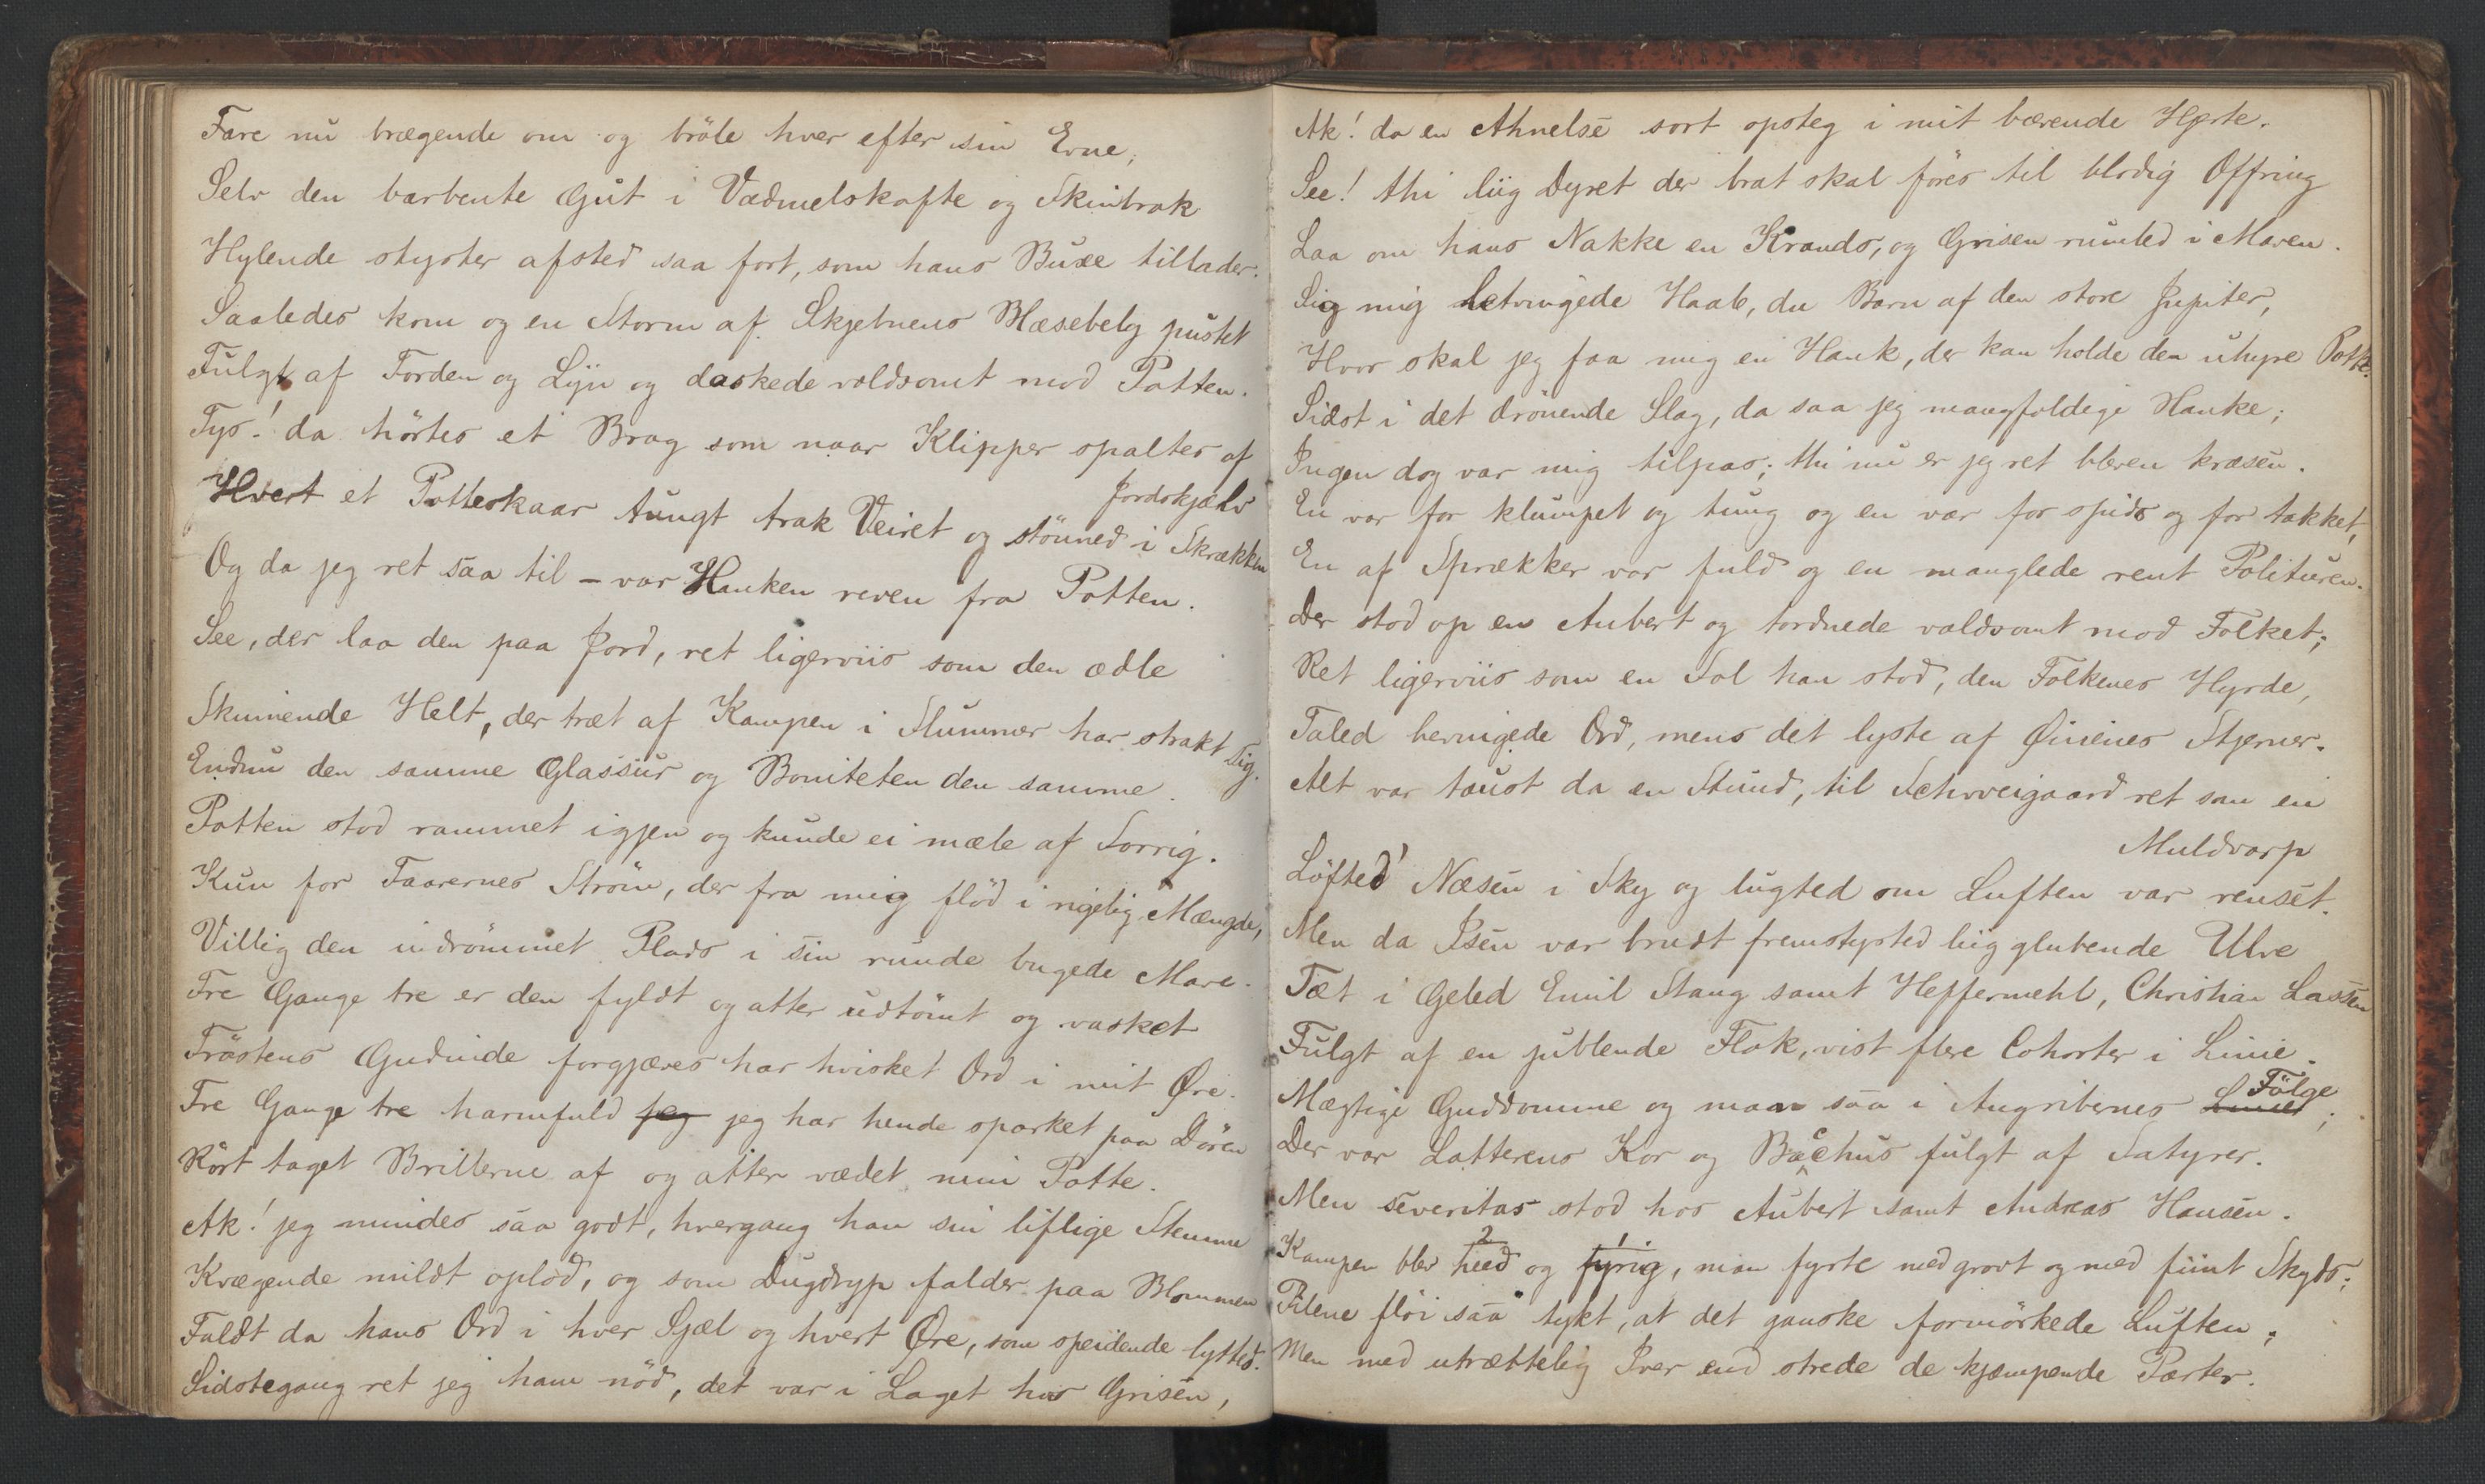 Fare nu brægende om og bröle hver efter sin Evne,
Selv den barbente Gut i Vadmelskofte og Skinbrok
Hylende styrter afsted saa fort, som hans Buxe tillader.
Saaledes kom og en Storm af Skjebnens Blæsebelg pustet
Fulgt af Torden og Lyn og daskede voldsomt mod Potten.
Tys! da hörtes et Brag som naar Klipper spaltes af
Jordskjælv
Hvert et Potteskaar tungt trak Veiret og stönned i Skrækken
Og da jeg ret saa til – var Hanken reven fra Potten.
See, der laa den paa Jord, ret ligerviis som den ædle
Skumende Helt, der træt af Kampen i Slummer har strakt sig.
Endnu den samme Glassur og Boniteten den samme.
Potten stod rammet igjen og kunde ei mæle af Sorrig.
Kun for Taarernes Ström, der fra mig flöd i rigelig Mængde,
Villig den indrömmet Plads i sin runde bugede Mave.
Tre Gange tre er den fyldt og atter udtömt og vasket
Tröstens Gudinde forgjæves har hvisket Ord i mit Øre.
Tre Gange tre harmfuld jeg jeg har hende sparket paa Dören
Rört taget Brillerne af og atter vædet min Potte.
Ak! jeg mindes saa godt, hvergang han sin liflige Stemme
Kvægende mildt oplod, og som Dugdryp falder paa Blommen
Faldt da hans Ord i hver Sjæl og hvert Øre, som speidende lytted.
Sidstegang ret jeg ham nöd, det var i Laget hos Grisen,
Ak! da en Ahnelse sort opsteg i mit bævende Hjerte.
See! thi liig Dyret der brat skal föres til blodig Offring
Laa om hans Nakke en Krands, og Grisen rumled i Maven.
Sig mig letvingede Haab, du Barn af den store Jupiter,
Hvor skal jeg faa mig en Hank, der kan holde den uhyre Potte.
Sidst i det drönende Slag, da saa jeg mangfoldige Hanke;
Ingen dog var mig tilpas; thi nu er jeg ret bleven kræsen.
En var for klumpet og tung og en var for spids og for takket,
En af Sprækker var fuld og en manglede rent Polituren.
Der stod op en Aubert og tordnede voldsomt mod Folket;
Ret ligerviis som en Sol han stod, den Folkenes Hyrde,
Taled bevingede Ord, mens det lyste af Øinenes Stjerner.
Alt var taust da en Stund, til Schweigaard ret som en
Muldvarp
Löfted' Næsen i Sky og lugted om Luften var renset.
Men da Isen var brudt fremstyrted liig glubende Ulve
Tæt i Geled Emil Stang samt Heffermehl, Christian Lassen
Fulgt af en jublende Flok, vist flere Cohorter i Linie.
Mægtige Guddomme og man saa i Angribernes Linier Fölge;
Der var Latterens Kor og Bacchus fulgt af Satyrer.
Men severitas stod hos Aubert samt Andreas Hansen.
2 1
Kampen blev heed og fyrig, man fyrte med grovt og med fiint Skyds;
Pilene flöi saa tykt, at det ganske formörkede Luften;
Men med utrættelig Iver end strede de kjæmpende Parter.